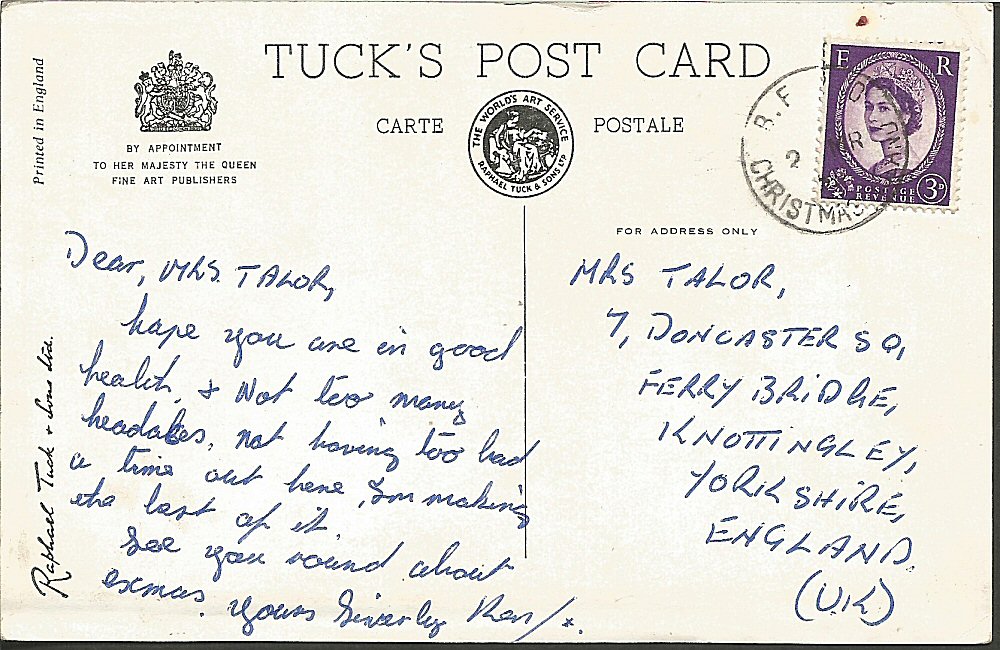 TUCK'S POST CARD
Printed in England
BY APPOINTMENT
TO HER MAJESTY THE QUEEN
FINE ART PUBLISHERS
CARTE
THE WORLD'S ART SERVICE
RAPHAEL TUCK & SONS LTD
POSTALE
F R
POSTAGE
REVENUE
3D
B.F
CHRISTMAS
Raphael Tuck & Sons Ltd.
Dear, MRS. TALOR,
hope you are in good
health, & Not too many
headakes, not having too bad
a time out here, Im making
the best of it
See you round about
exmas. yours Sinverly Ron/*.
FOR ADDRESS ONLY
MRS TALOR,
7, DONCASTER SQ,
FERRY BRIDGE,
KNOTTINGLEY,
YORKSHIRE,
ENGLAND.
(U.K)